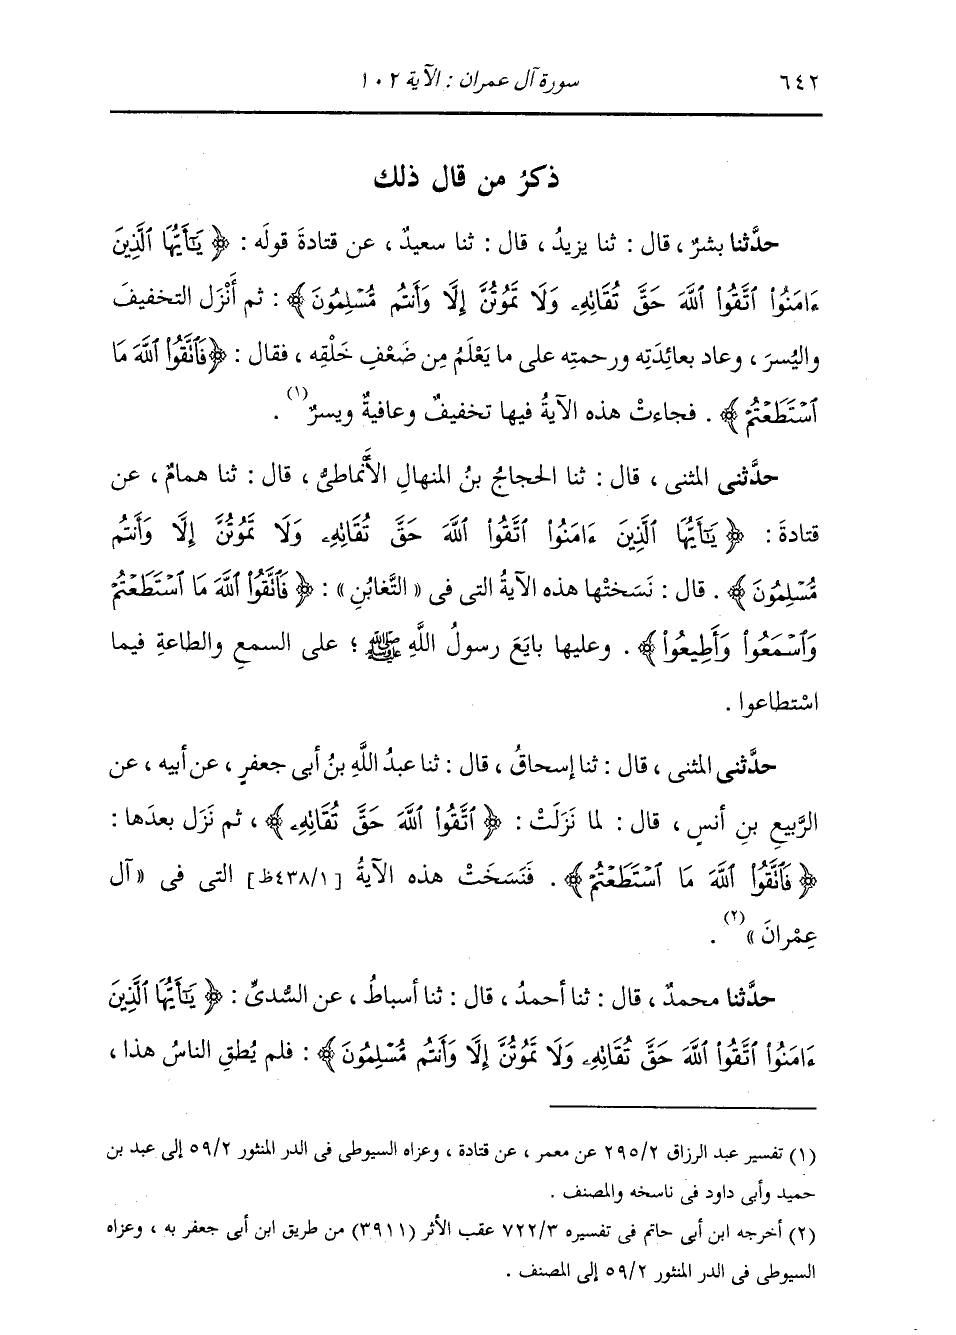 ٦٤٢
سورة آل عمران : الآية ١٠٢
ذكرُ من قال ذلك
حدَّثنا بشرٌ ، قال : ثنا يزيدُ ، قال : ثنا سعيدٌ ، عن قتادةَ قولَه : ﴿ يَـٰٓأَيُّهَا ٱلَّذِينَ
ءَامَنُوا۟ ٱتَّقُوا۟ ٱللَّهَ حَقَّ تُقَانِهِۦ وَلَا تَمُوتُنَّ إِلَّا وَأَنتُم مُّسْلِمُونَ ﴾ : ثم أَنْزَل التخفيفَ
واليُسرَ ، وعاد بعائدَتِه ورحمتِه على ما يَعْلَمُ مِن ضَعْفِ خَلْقِه ، فقال : ﴿ فَٱتَّقُوا۟ ٱللَّهَ مَا
ٱسْتَطَعْتُمْ ﴾ . فجاءتْ هذه الآيةُ فيها تخفيفٌ وعافيةٌ ويسرٌ(١) .
حدَّثنى المثنى ، قال : ثنا الحجاجُ بنُ المنهالِ الأَنماطىُّ ، قال : ثنا همامٌ ، عن
قتادةَ : ﴿ يَـٰٓأَيُّهَا ٱلَّذِينَ ءَامَنُوا۟ ٱتَّقُوا۟ ٱللَّهَ حَقَّ تُقَانِهِۦ وَلَا تَمُوتُنَّ إِلَّا وَأَنتُم
مُّسْلِمُونَ ﴾ . قال : نَسَختْها هذه الآيةُ التى فى « التَّغابُنِ » : ﴿ فَٱتَّقُوا۟ ٱللَّهَ مَا ٱسْتَطَعْتُمْ
وَٱسْمَعُوا۟ وَأَطِيعُوا۟ ﴾ . وعليها بايَعَ رسولُ اللَّهِ ﷺ ؛ على السمعِ والطاعةِ فيما
اسْتطاعوا .
حدَّثنى المثنى ، قال : ثنا إسحاقُ ، قال : ثنا عبدُ اللَّهِ بنُ أبى جعفرٍ ، عن أبيه ، عن
الرَّبيعِ بنِ أنسٍ ، قال : لما نَزَلَتْ : ﴿ ٱتَّقُوا۟ ٱللَّهَ حَقَّ تُقَانِهِۦ ﴾ ، ثم نَزَل بعدَها :
﴿ فَٱتَّقُوا۟ ٱللَّهَ مَا ٱسْتَطَعْتُمْ ﴾ . فَنَسَخَتْ هذه الآيةُ [٤٣٨/١ظ] التى فى « آل
عِمْرانَ »(٢) .
حدَّثنا محمدٌ ، قال : ثنا أحمدُ ، قال : ثنا أسباطُ ، عن السُّدىِّ : ﴿ يَـٰٓأَيُّهَا ٱلَّذِينَ
ءَامَنُوا۟ ٱتَّقُوا۟ ٱللَّهَ حَقَّ تُقَانِهِۦ وَلَا تَمُوتُنَّ إِلَّا وَأَنتُم مُّسْلِمُونَ ﴾ : فلم يُطقِ الناسُ هذا ،
(١) تفسير عبد الرزاق ٢٩٥/٢ عن معمر ، عن قتادة ، وعزاه السيوطى فى الدر المنثور ٥٩/٢ إلى عبد بن
حميد وأبى داود فى ناسخه والمصنف .
(٢) أخرجه ابن أبى حاتم فى تفسيره ٧٢٢/٣ عقب الأثر (٣٩١١) من طريق ابن أبى جعفر به ، وعزاه
السيوطى فى الدر المنثور ٥٩/٢ إلى المصنف .